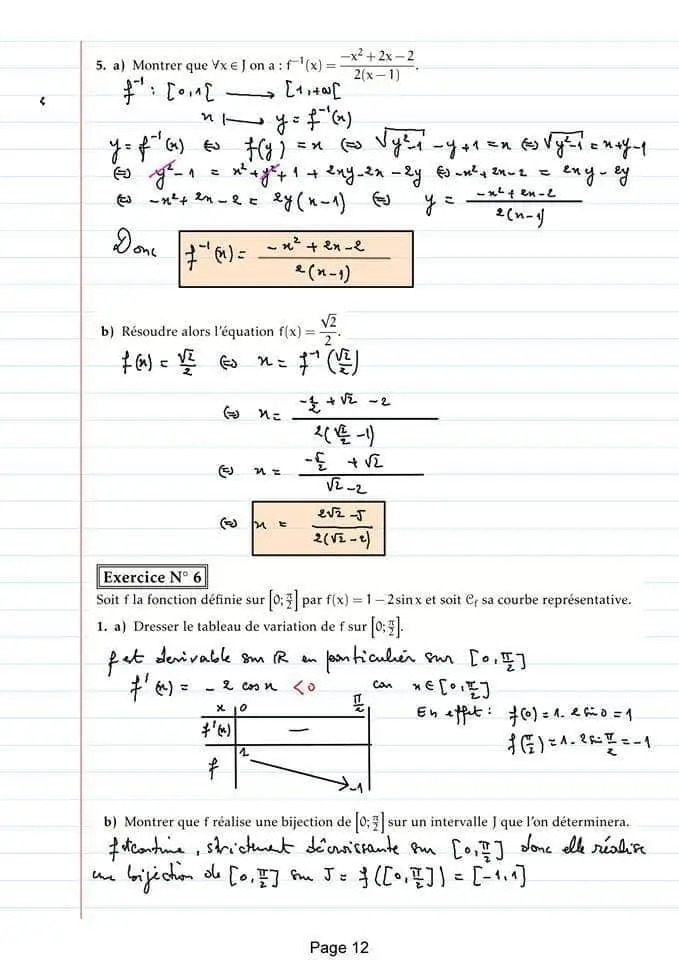 5. a) Montrer que ∀x ∈ J on a : f⁻¹(x) = (−x² + 2x − 2)/(2(x − 1)).
f⁻¹ : [0,1[ ⟶ [1,+∞[
x ⟼ y = f⁻¹(x)
y = f⁻¹(x) ⇔ f(y) = x ⇔ √(y²-1) - y + 1 = x ⇔ √(y²-1) = x + y - 1
⇔ y² - 1 = x² + y² + 1 + 2xy - 2x - 2y ⇔ -x² + 2x - 2 = 2xy - 2y
⇔ -x² + 2x - 2 = 2y(x-1) ⇔ y = (-x² + 2x - 2)/(2(x-1))
Donc f⁻¹(x) = (-x² + 2x - 2)/(2(x-1))
b) Résoudre alors l'équation f(x) = √2/2.
f(x) = √2/2 ⇔ x = f⁻¹(√2/2)
⇔ x = (-1/2 + √2 - 2)/(2(√2/2 - 1))
⇔ x = (-5/2 + √2)/(√2 - 2)
⇔ x = (2√2 - 5)/(2(√2 - 2))
Exercice N° 6
Soit f la fonction définie sur [0; π/2] par f(x) = 1 − 2 sin x et soit 𝒞f sa courbe représentative.
1. a) Dresser le tableau de variation de f sur [0; π/2].
f est derivable sur ℝ en particulier sur [0, π/2]
f'(x) = - 2 cos x < 0 car x ∈ [0, π/2]
x 0 π/2
f'(x) −
f 1 -1
En effet : f(0) = 1 - 2 sin 0 = 1
f(π/2) = 1 - 2 sin π/2 = -1
b) Montrer que f réalise une bijection de [0; π/2] sur un intervalle J que l'on déterminera.
f est continue, strictement décroissante sur [0, π/2] donc elle réalise
une bijéction de [0, π/2] sur J = f([0, π/2]) = [-1, 1]
Page 12